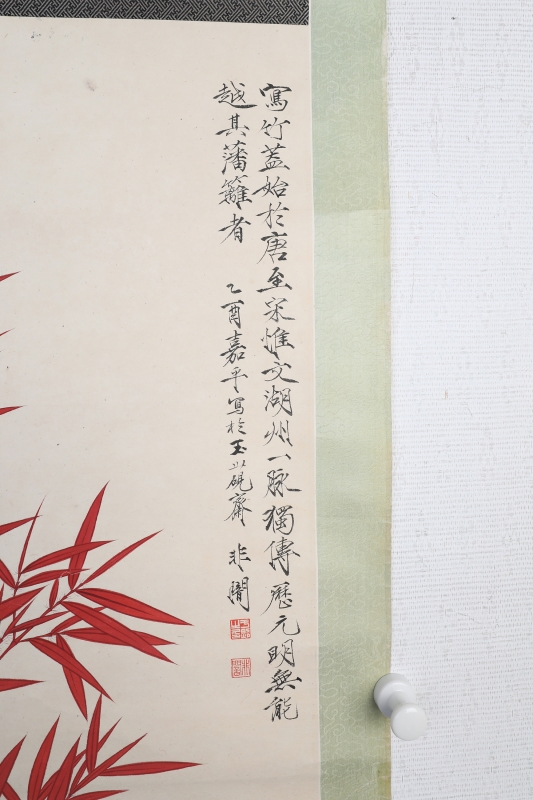 寫竹蓋始於唐至宋惟文湖州一脉獨傳歷元明無能
越其藩籬者 乙酉嘉平寫於玉山硯齋 非闇